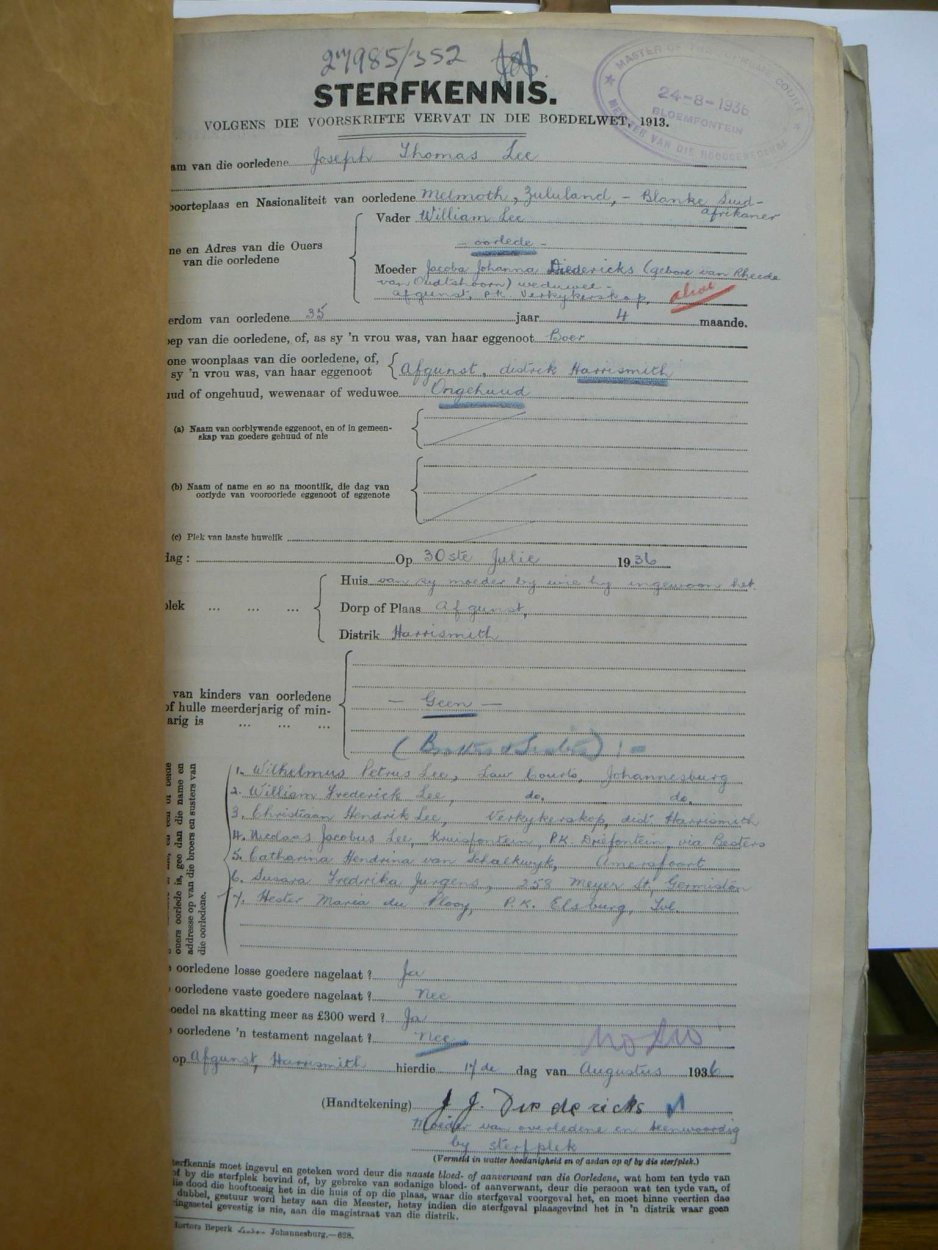 27985/352
MASTER OF THE SUPREME COURT
24-8-1936
BLOEMFONTEIN
MEESTER VAN DIE HOOGGEREGSHOF
STERFKENNIS.
VOLGENS DIE VOORSKRIFTE VERVAT IN DIE BOEDELWET, 1913.
am van die oorledene Joseph Thomas Lee
boorteplaas en Nasionaliteit van oorledene Melmoth, Zululand, - Blanke Suid-
afrikaner
Vader William Lee
- oorlede -
ne en Adres van die Ouers
van die oorledene
Moeder Jacoba Johanna Diedericks (gebore van Rheede
van Oudtshoorn) weduwee -
Afgunst, P.K. Verkykerskop, alive
erdom van oorledene 35 jaar 4 maande.
ep van die oorledene, of, as sy 'n vrou was, van haar eggenoot Boer
one woonplaas van die oorledene, of,
sy 'n vrou was, van haar eggenoot Afgunst, distrik Harrismith
uud of ongehuud, wewenaar of weduwee Ongehuud
(a) Naam van oorblywende eggenoot, en of in gemeen-
skap van goedere gehuud of nie
(b) Naam of name en so na moontlik, die dag van
oorlyde van vooroorlede eggenoot of eggenote
(c) Plek van laaste huwelik
dag : Op 30ste Julie 1936
Huis van sy moeder by wie hy ingewoon het
plek ... ... ... Dorp of Plaas Afgunst,
Distrik Harrismith
van kinders van oorledene
of hulle meerderjarig of min-
arig is ... ... ...
- Geen -
ouers oorlede is, gee dan die name en
addresse op van die broers en susters van
die oorledene.
1. Wilhelmus Petrus Lee, Law Courts, Johannesburg
2. William Frederick Lee, do. do.
3. Christiaan Hendrik Lee, Verkykerskop, dist Harrismith
4. Nicolaas Jacobus Lee, Kruisfontein, P.K. Driefontein, via Besters
5. Catharina Hendrina van Schalkwyk, Amersfoort
6. Susara Fredrika Jurgens, 258 Meyer St, Germiston
7. Hester Maria du Plooy, P.K. Elsburg, Tvl.
oorledene losse goedere nagelaat ? Ja
oorledene vaste goedere nagelaat ? Nee
oedel na skatting meer as £300 werd ? Ja
oorledene 'n testament nagelaat ? Nee
op Afgunst, Harrismith hierdie 17de dag van Augustus 1936
(Handtekening) J J. Diedericks
Moeder van overledene en teenwoordig
by sterfplek
(Vermeld in watter hoedanigheid en of asdan op of by die sterfplek.)
terfkennis moet ingevul en geteken word deur die naaste bloed- of aanverwant van die Oorledene, wat hom ten tyde van
of by die sterfplek bevind of, by gebreke van sodanige bloed- of aanverwant, deur die persoon wat ten tyde van, of
lie dood die hooftoesig het in die huis of op die plaas, waar die sterfgeval voorgeval het, en moet binne veertien dae
dubbel, gestuur word hetsy aan die Meester, hetsy indien die sterfgeval plaasgevind het in 'n distrik waar geen
ringsetel gevestig is nie, aan die magistraat van die distrik.
Hortors Beperk Johannesburg.—628.